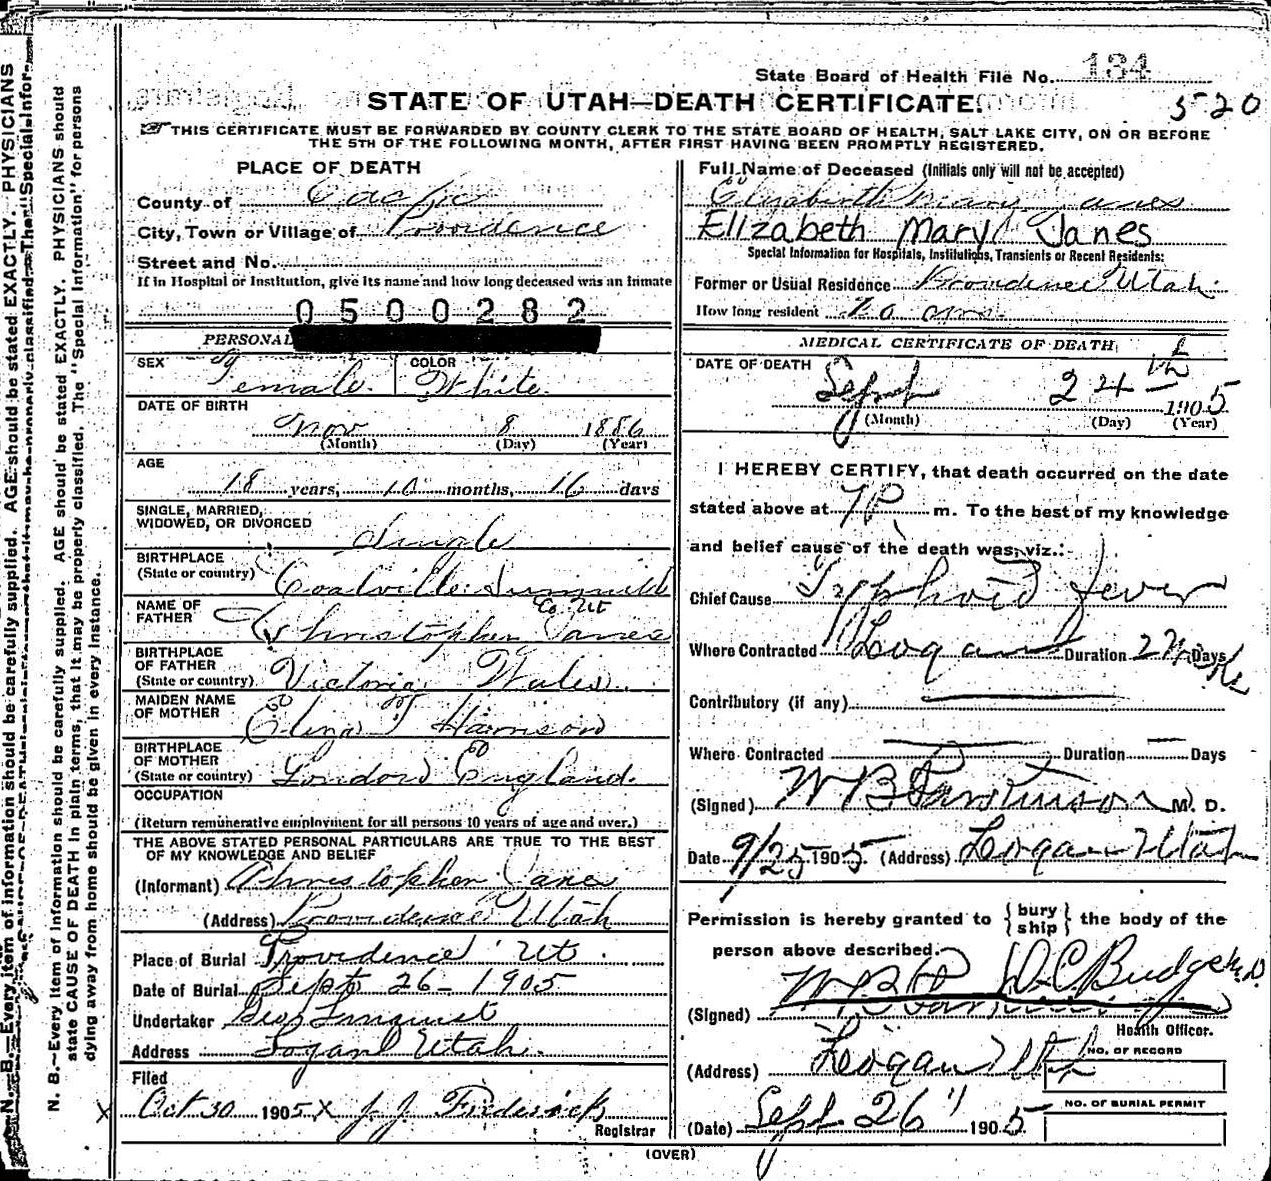 State Board of Health File No. 134
STATE OF UTAH—DEATH CERTIFICATE.
5 20
THIS CERTIFICATE MUST BE FORWARDED BY COUNTY CLERK TO THE STATE BOARD OF HEALTH, SALT LAKE CITY, ON OR BEFORE
THE 5TH OF THE FOLLOWING MONTH, AFTER FIRST HAVING BEEN PROMPTLY REGISTERED.
PLACE OF DEATH
County of Cache
City, Town or Village of Providence
Street and No.
If in Hospital or Institution, give its name and how long deceased was an inmate
0500282
PERSONAL
SEX Female COLOR White
DATE OF BIRTH
Nov 8 1886
(Month) (Day) (Year)
AGE
18 years, 10 months, 16 days
SINGLE, MARRIED,
WIDOWED, OR DIVORCED
Single
BIRTHPLACE
(State or country) Coalville Summit
Co. Ut
NAME OF
FATHER Christopher Janes
BIRTHPLACE
OF FATHER
(State or country) Victoria Wales
MAIDEN NAME
OF MOTHER Harrison
BIRTHPLACE
OF MOTHER
(State or country) London England.
OCCUPATION
(Return remunerative employment for all persons 10 years of age and over.)
THE ABOVE STATED PERSONAL PARTICULARS ARE TRUE TO THE BEST
OF MY KNOWLEDGE AND BELIEF
(Informant) Christopher Janes
(Address) Providence Utah
Place of Burial Providence Ut.
Date of Burial Sept 26 - 1905
Undertaker Geo
Address Logan Utah.
Filed
Oct 30 1905 X J. J. Frederick
Registrar
Full Name of Deceased (Initials only will not be accepted)
Elizabeth Mary Janes
Elizabeth Mary Janes
Special Information for Hospitals, Institutions, Transients or Recent Residents:
Former or Usual Residence Providence Utah.
How long resident
MEDICAL CERTIFICATE OF DEATH
DATE OF DEATH
Sept 24th 1905
(Month) (Day) (Year)
I HEREBY CERTIFY, that death occurred on the date
stated above at 7 P. m. To the best of my knowledge
and belief cause of the death was, viz.:
Chief Cause Typhoid fever
Where Contracted Logan Duration 2 Weeks Days
Contributory (if any)
Where Contracted Duration Days
(Signed) W B Parkinson M. D.
Date 9/25 1905 (Address) Logan Utah
Permission is hereby granted to {bury ship} the body of the
person above described.
W B P D C Budge M.D.
(Signed)
Health Officer.
(Address) Logan Utah
NO. OF RECORD
NO. OF BURIAL PERMIT
(Date) Sept. 26 1905
(OVER)
N. B.—Every item of information should be carefully supplied. AGE should be stated EXACTLY. PHYSICIANS should
state CAUSE OF DEATH in plain terms, that it may be properly classified. The "Special Information" for persons
dying away from home should be given in every instance.
N. B.—Every item of information should be carefully supplied. AGE should be stated EXACTLY. PHYSICIANS